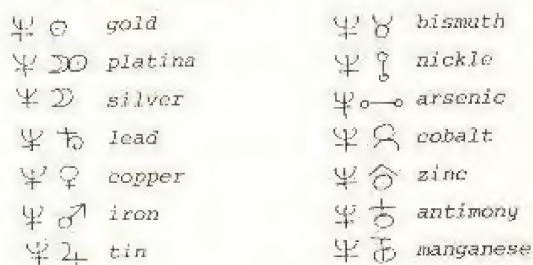 ♆ ☉ gold
♆ ☽☉ platina
♆ ☽ silver
♆ ♄ lead
♆ ♀ copper
♆ ♂ iron
♆ ♃ tin
♆ ♉ bismuth
♆ nickle
♆ arsenic
♆ cobalt
♆ zinc
♆ ♁ antimony
♆ manganese